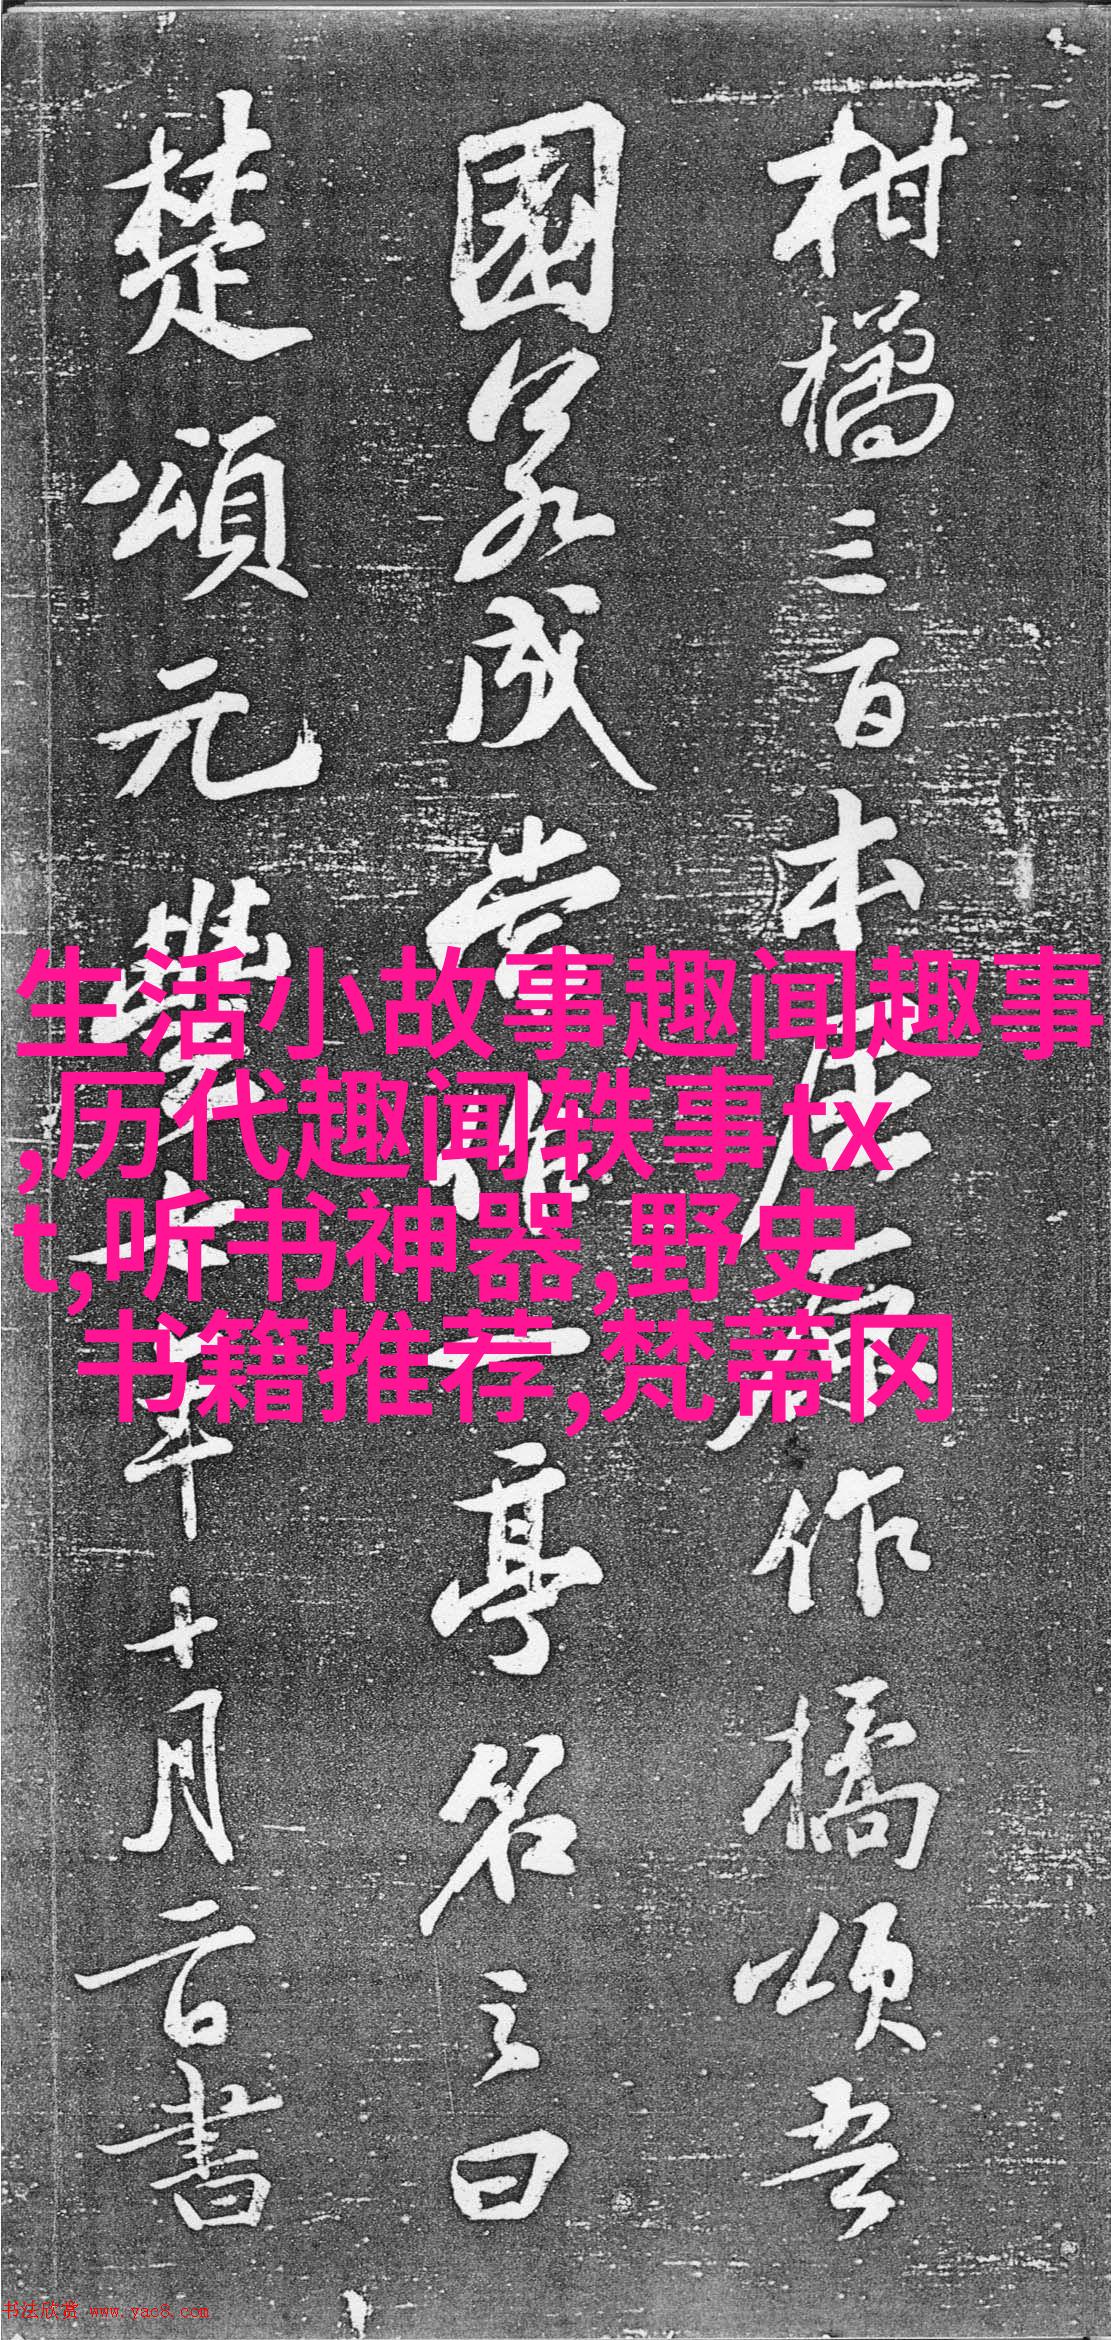 柑橘三百本屈原作橘頌吾
園若成當作一亭名之曰
楚頌元豐七年十月二日書
生活小故事趣闻趣事
,历代趣闻轶事tx
t,听书神器,野史
书籍推荐,梵蒂冈
书法欣赏 www.yac8.com